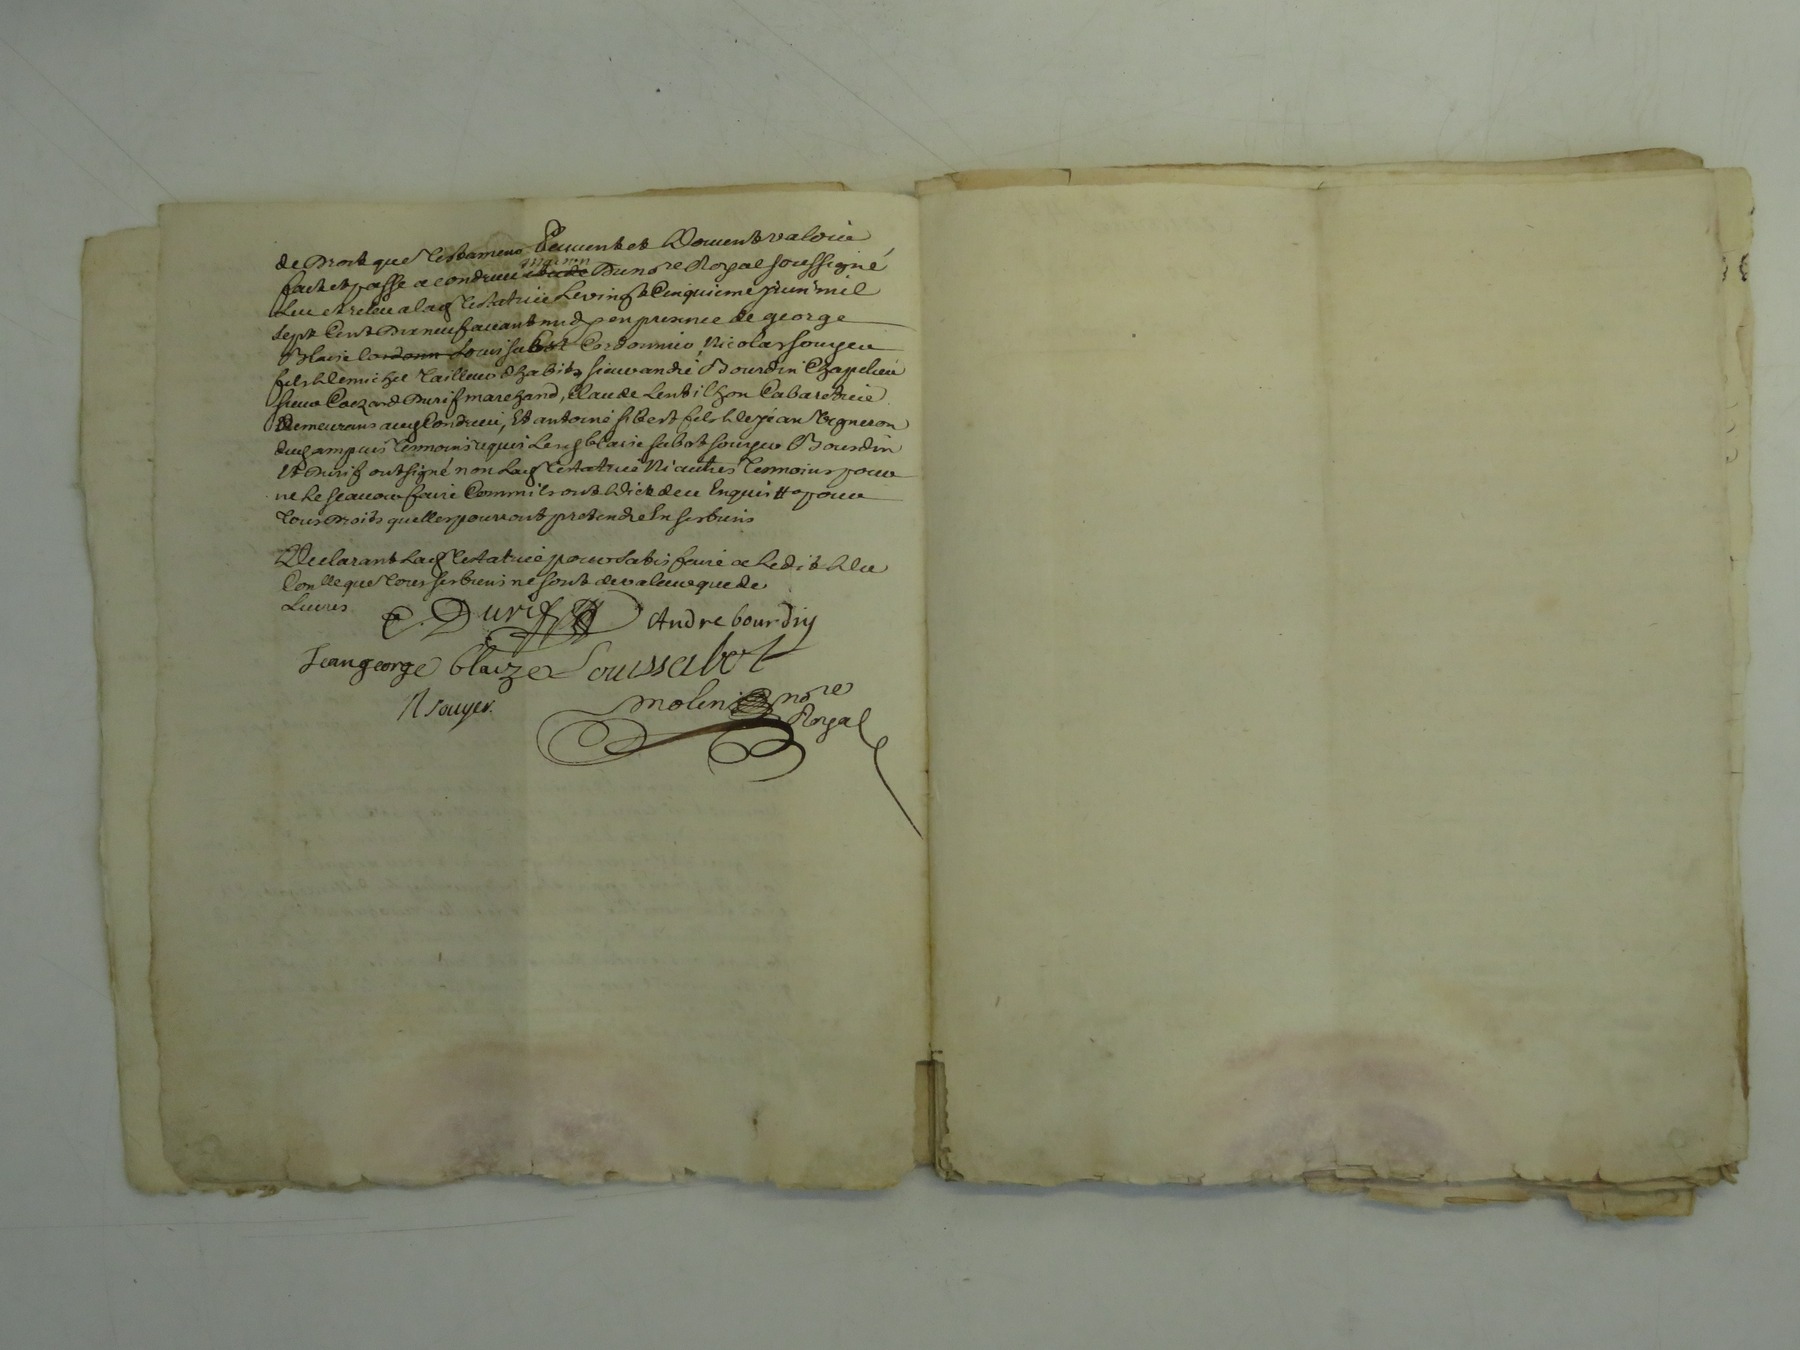 de Droit que Testamens peuvent et Doivent valoir
fait et passé a condrieu maison étude Du nore Royal soussigné
Leu et releu a lad Testatrice Le vingt Cinquieme juin mil
sept Cent Dixneuf avant midy en presence de george
Blaise Cordonn Louis sabot Cordonnier, Nicolas souyer
fils de michel Tailleur d'habits sieur andré Bourdin Chapelier
sieur Durif marchand, Claude Lentilhon Cabaretier
Demeurans aud Condrieu, Et antoine fils de jean Vigneron
dud ampuis Temoins requis Lesd blaise sabot souyer Bourdin
et Durif ont signé non Lad Testatrice Ni autres Temoins pour
ne Le scavoir faire Comm ils ont Dit de ce Enquis # pour
Tous Droits qu elles pourront pretendre En ses biens
Declarant Lad Testatrice pour satisfaire a L edit du
Conlle que Tous ses biens ne sont de valeur que de
Livres
C. Durif Andre bourdin
Jean george blaize Louis sabot
N souyer
molin nore
Royal